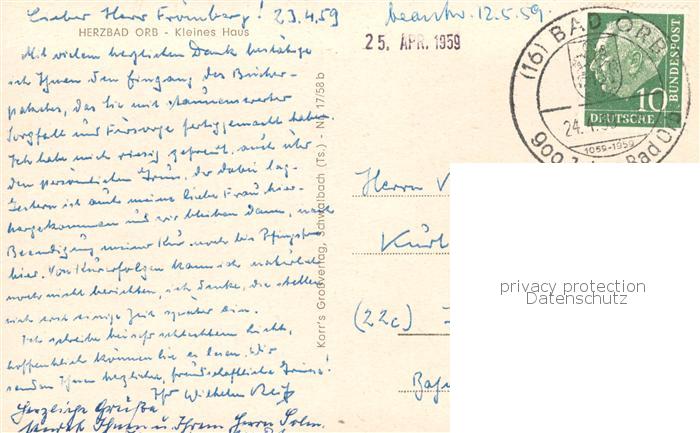 Lieber Herr Fromberg! 23.4.59
HERZBAD ORB - Kleines Haus
Mit vielem herzlichen Dank bestätige
ich Ihnen den Eingang des Bücher-
paketes, das Sie mit staunenswerter
Sorgfalt und Fürsorge fertiggemacht haben.
Ich habe mich riesig gefreut, auch über
den persönlichen Gruss, der dabei lag.
Gestern ist auch meine liebe Frau hier-
hergekommen und wir bleiben dann, nach
Beendigung meiner Kur noch bis Pfingsten
hier. Von Kurerfolgen kann ich natürlich
noch nicht berichten, ich denke, die stellen
sich erst einige Zeit später ein.
Ich schreibe bei sehr schlechtem Licht,
hoffentlich können Sie es lesen. Wir
senden Ihnen herzliche, freundschaftliche Grüsse!
Ihr Wilhelm
Herzliche Grüße
Ihnen u Ihrem Herrn Sohn.
Korr's Großverlag, Schwalbach (Ts.) - Nr. 17/58 b
beantw. 12.5.59.
25. APR. 1959
(16) BAD ORB
24.
1059-1959
900 Bad Orb
10
DEUTSCHE
BUNDESPOST
Herrn
Kurt
(22c)
privacy protection
Datenschutz